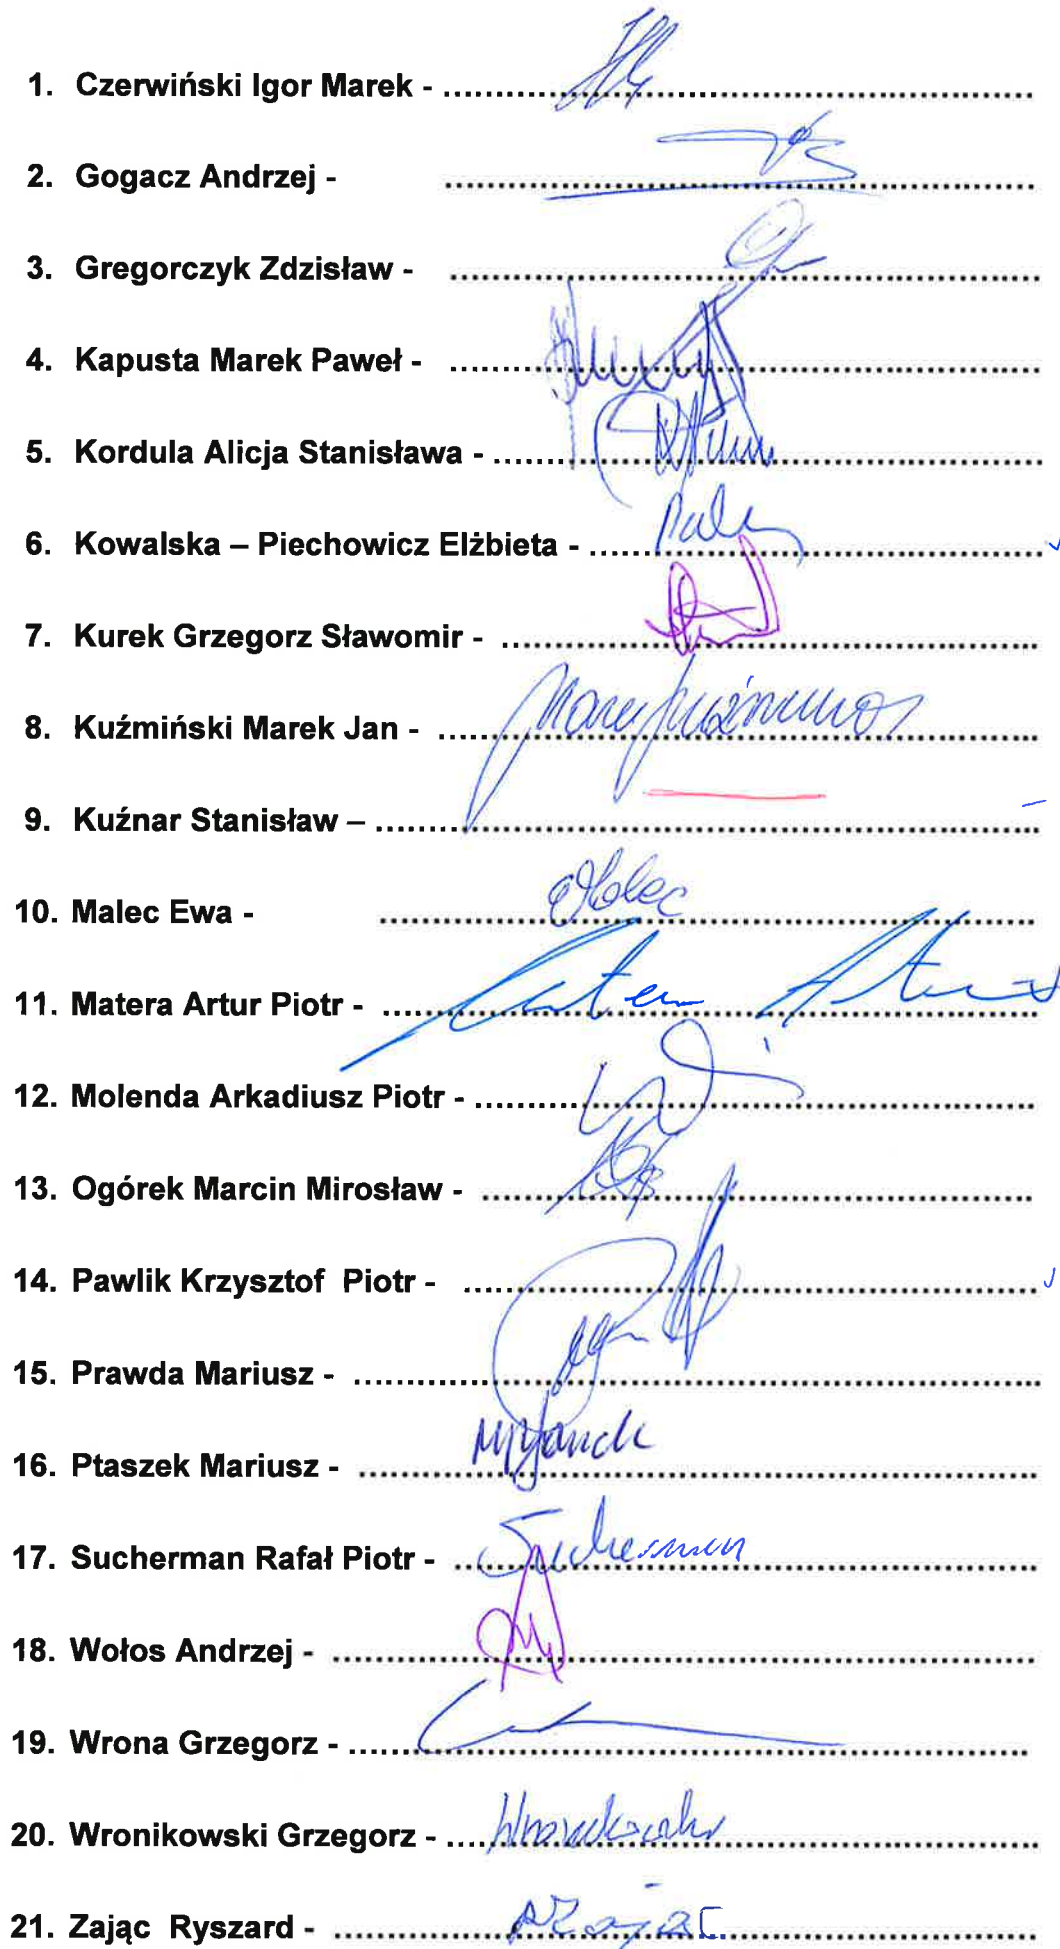 1. Czerwiński Igor Marek - ........................
2. Gogacz Andrzej - ........................
3. Gregorczyk Zdzisław - ........................
4. Kapusta Marek Paweł - ........................
5. Kordula Alicja Stanisława - ........................
6. Kowalska – Piechowicz Elżbieta - ........................
7. Kurek Grzegorz Sławomir - ........................
8. Kuźmiński Marek Jan - ........................
9. Kuźnar Stanisław – ........................
10. Malec Ewa - ........................ Malec
11. Matera Artur Piotr - ........................
12. Molenda Arkadiusz Piotr - ........................
13. Ogórek Marcin Mirosław - ........................
14. Pawlik Krzysztof Piotr - ........................
15. Prawda Mariusz - ........................
16. Ptaszek Mariusz - ........................
17. Sucherman Rafał Piotr - ........................ Sucherman
18. Wołos Andrzej - ........................
19. Wrona Grzegorz - ........................
20. Wronikowski Grzegorz - ........................
21. Zając Ryszard - ........................ RZając